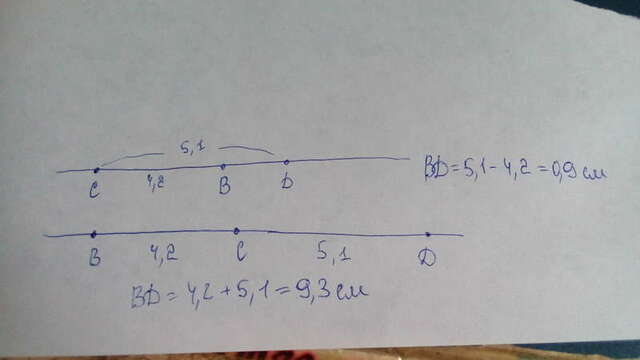 5,1
C 4,2 B D
BD = 5,1 - 4,2 = 0,9 см
B 4,2 C 5,1 D
BD = 4,2 + 5,1 = 9,3 см